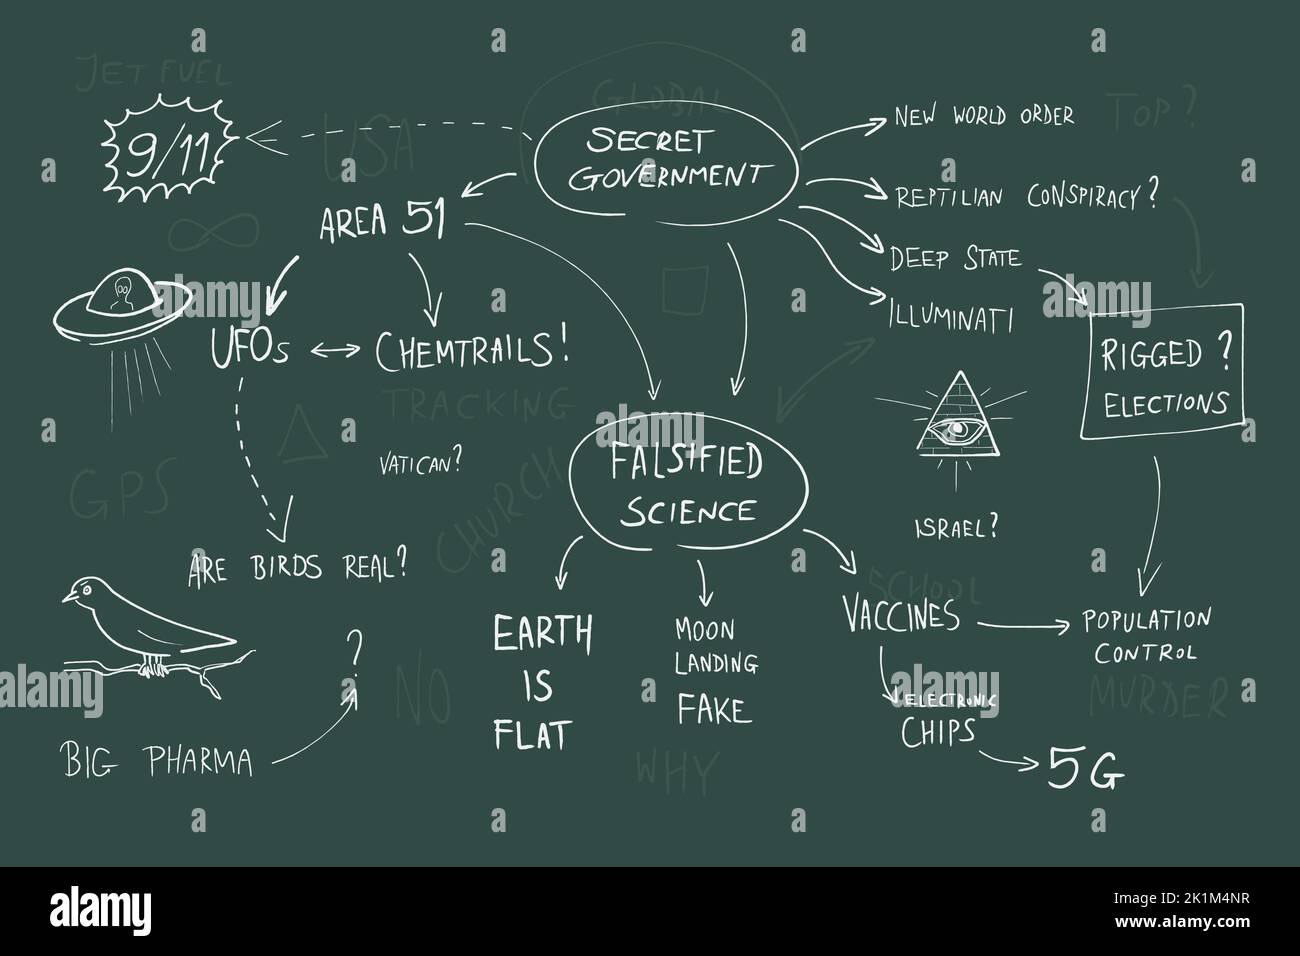 JET FUEL
GLOBAL
9/11
USA
SECRET
GOVERNMENT
NEW WORLD ORDER
TOP?
REPTILIAN CONSPIRACY?
AREA 51
DEEP STATE
ILLUMINATI
UFOs
CHEMTRAILS!
RIGGED ?
ELECTIONS
TRACKING
VATICAN?
GPS
CHURCH
FALSIFIED
SCIENCE
ISRAEL?
ARE BIRDS REAL?
SCHOOL
EARTH
IS
FLAT
MOON
LANDING
FAKE
VACCINES
POPULATION
CONTROL
MURDER
?
NO
ELECTRONIC
CHIPS
BIG PHARMA
WHY
5G
a alamy
alamy
Image ID: 2K1M4NR
www.alamy.com